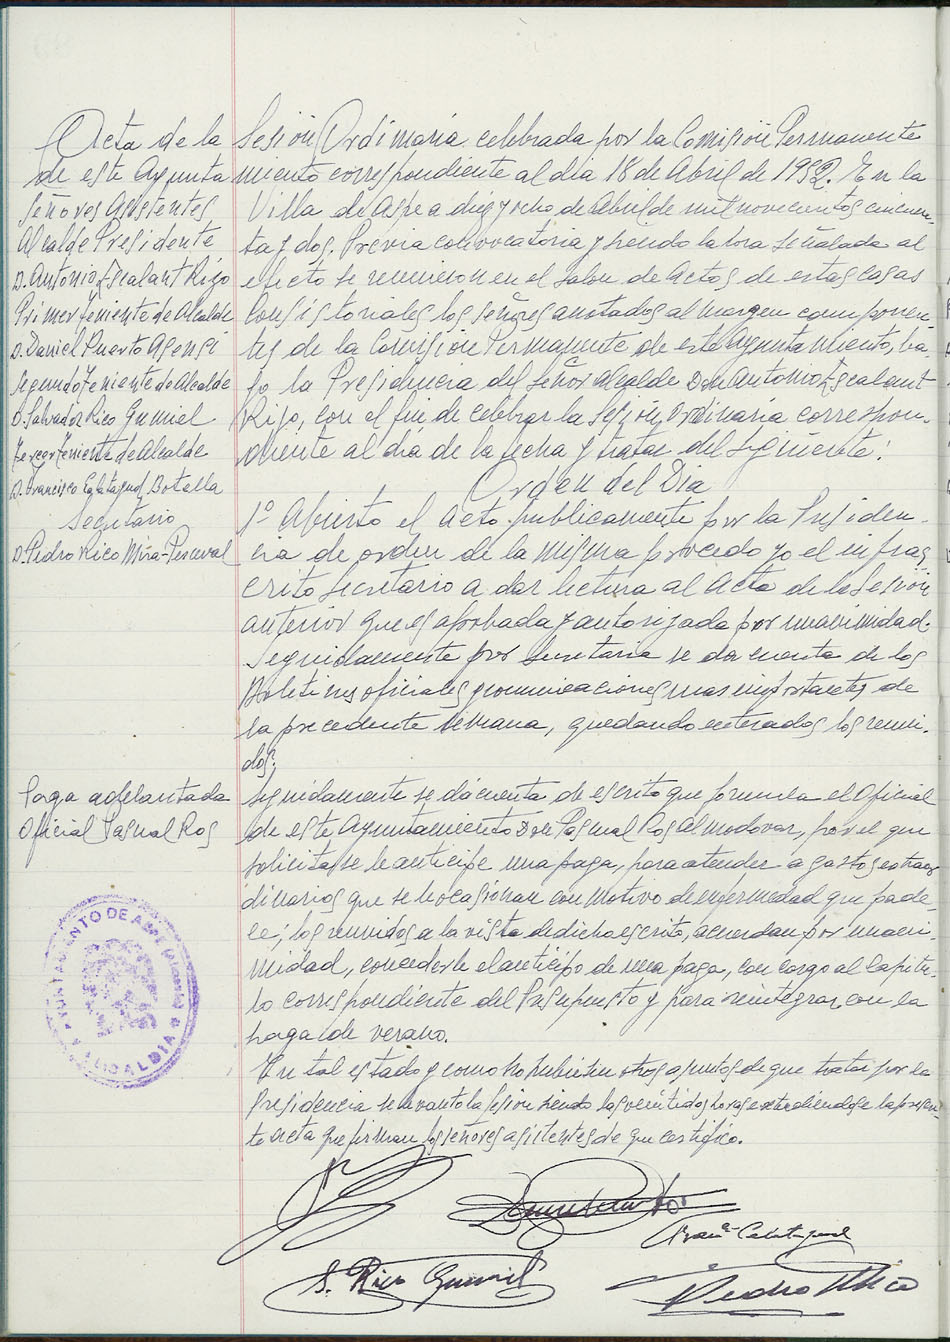 Acta de la Sesión Ordinaria celebrada por la Comisión Permanente
de este Ayuntamiento correspondiente al dia 18 de Abril de 1952. En la
Villa de Aspe a diez y ocho de Abril de mil novecientos cincuen-
ta y dos. Previa convocatoria y siendo la hora señalada al
efecto se reunieron en el salon de actos de estas casas
Consistoriales los señores anotados al margen componen-
tes de la Comision Permanente de este Ayuntamiento, ba-
jo la Presidencia del Señor Alcalde Don Antonio Escalant
Rizo, con el fin de celebrar la sesión Ordinaria correspon-
diente al día de la fecha y tratar del siguiente:
Orden del Dia
1º Abierto el acto publicamente por la Presiden-
cia de orden de la misma procedo yo el infras-
crito secretario a dar lectura al acta de la sesión
anterior que es aprobada y autorizada por unanimidad.
Seguidamente por Secretaria se da cuenta de los
Boletines oficiales y comunicaciones mas importantes de
la precedente semana, quedando enterados los reuni-
dos.
Seguidamente se da cuenta de escrito que formula el Oficial
de este Ayuntamiento Don Pasqual Ros Almodovar, por el que
solicita se le anticipe una paga, para atender a gastos extraor
dinarios que se le ocasionan con motivo de enfermedad que pade-
ce; los reunidos a la vista de dicho escrito, acuerdan por unani-
midad, concederle el anticipo de una paga, con cargo al Capitu-
lo correspondiente del Presupuesto y para reintegrar con la
paga de verano.
En tal estado y como no hubiesen otros asuntos de que tratar por la
Presidencia se levanto la sesion siendo las veintidos horas extendiendose la presen-
te acta que firman los señores asistentes de que certifico.
Señores Asistentes
Alcalde Presidente
D. Antonio Escalant Rizo
Primer Teniente de Alcalde
D. Daniel Puerto Asensi
Segundo Teniente de Alcalde
D. Salvador Rico Gumiel
Tercer Teniente de Alcalde
D. Francisco Calatayud Botella
Secretario
D. Pedro Rico Mira-Perceval
Paga adelantada
Oficial Pasqual Ros
AYUNTAMIENTO DE ASPE (Alicante)
ALCALDIA
Daniel Puerto
Franco Calatayud
S. Rico Gumiel
Pedro Rico